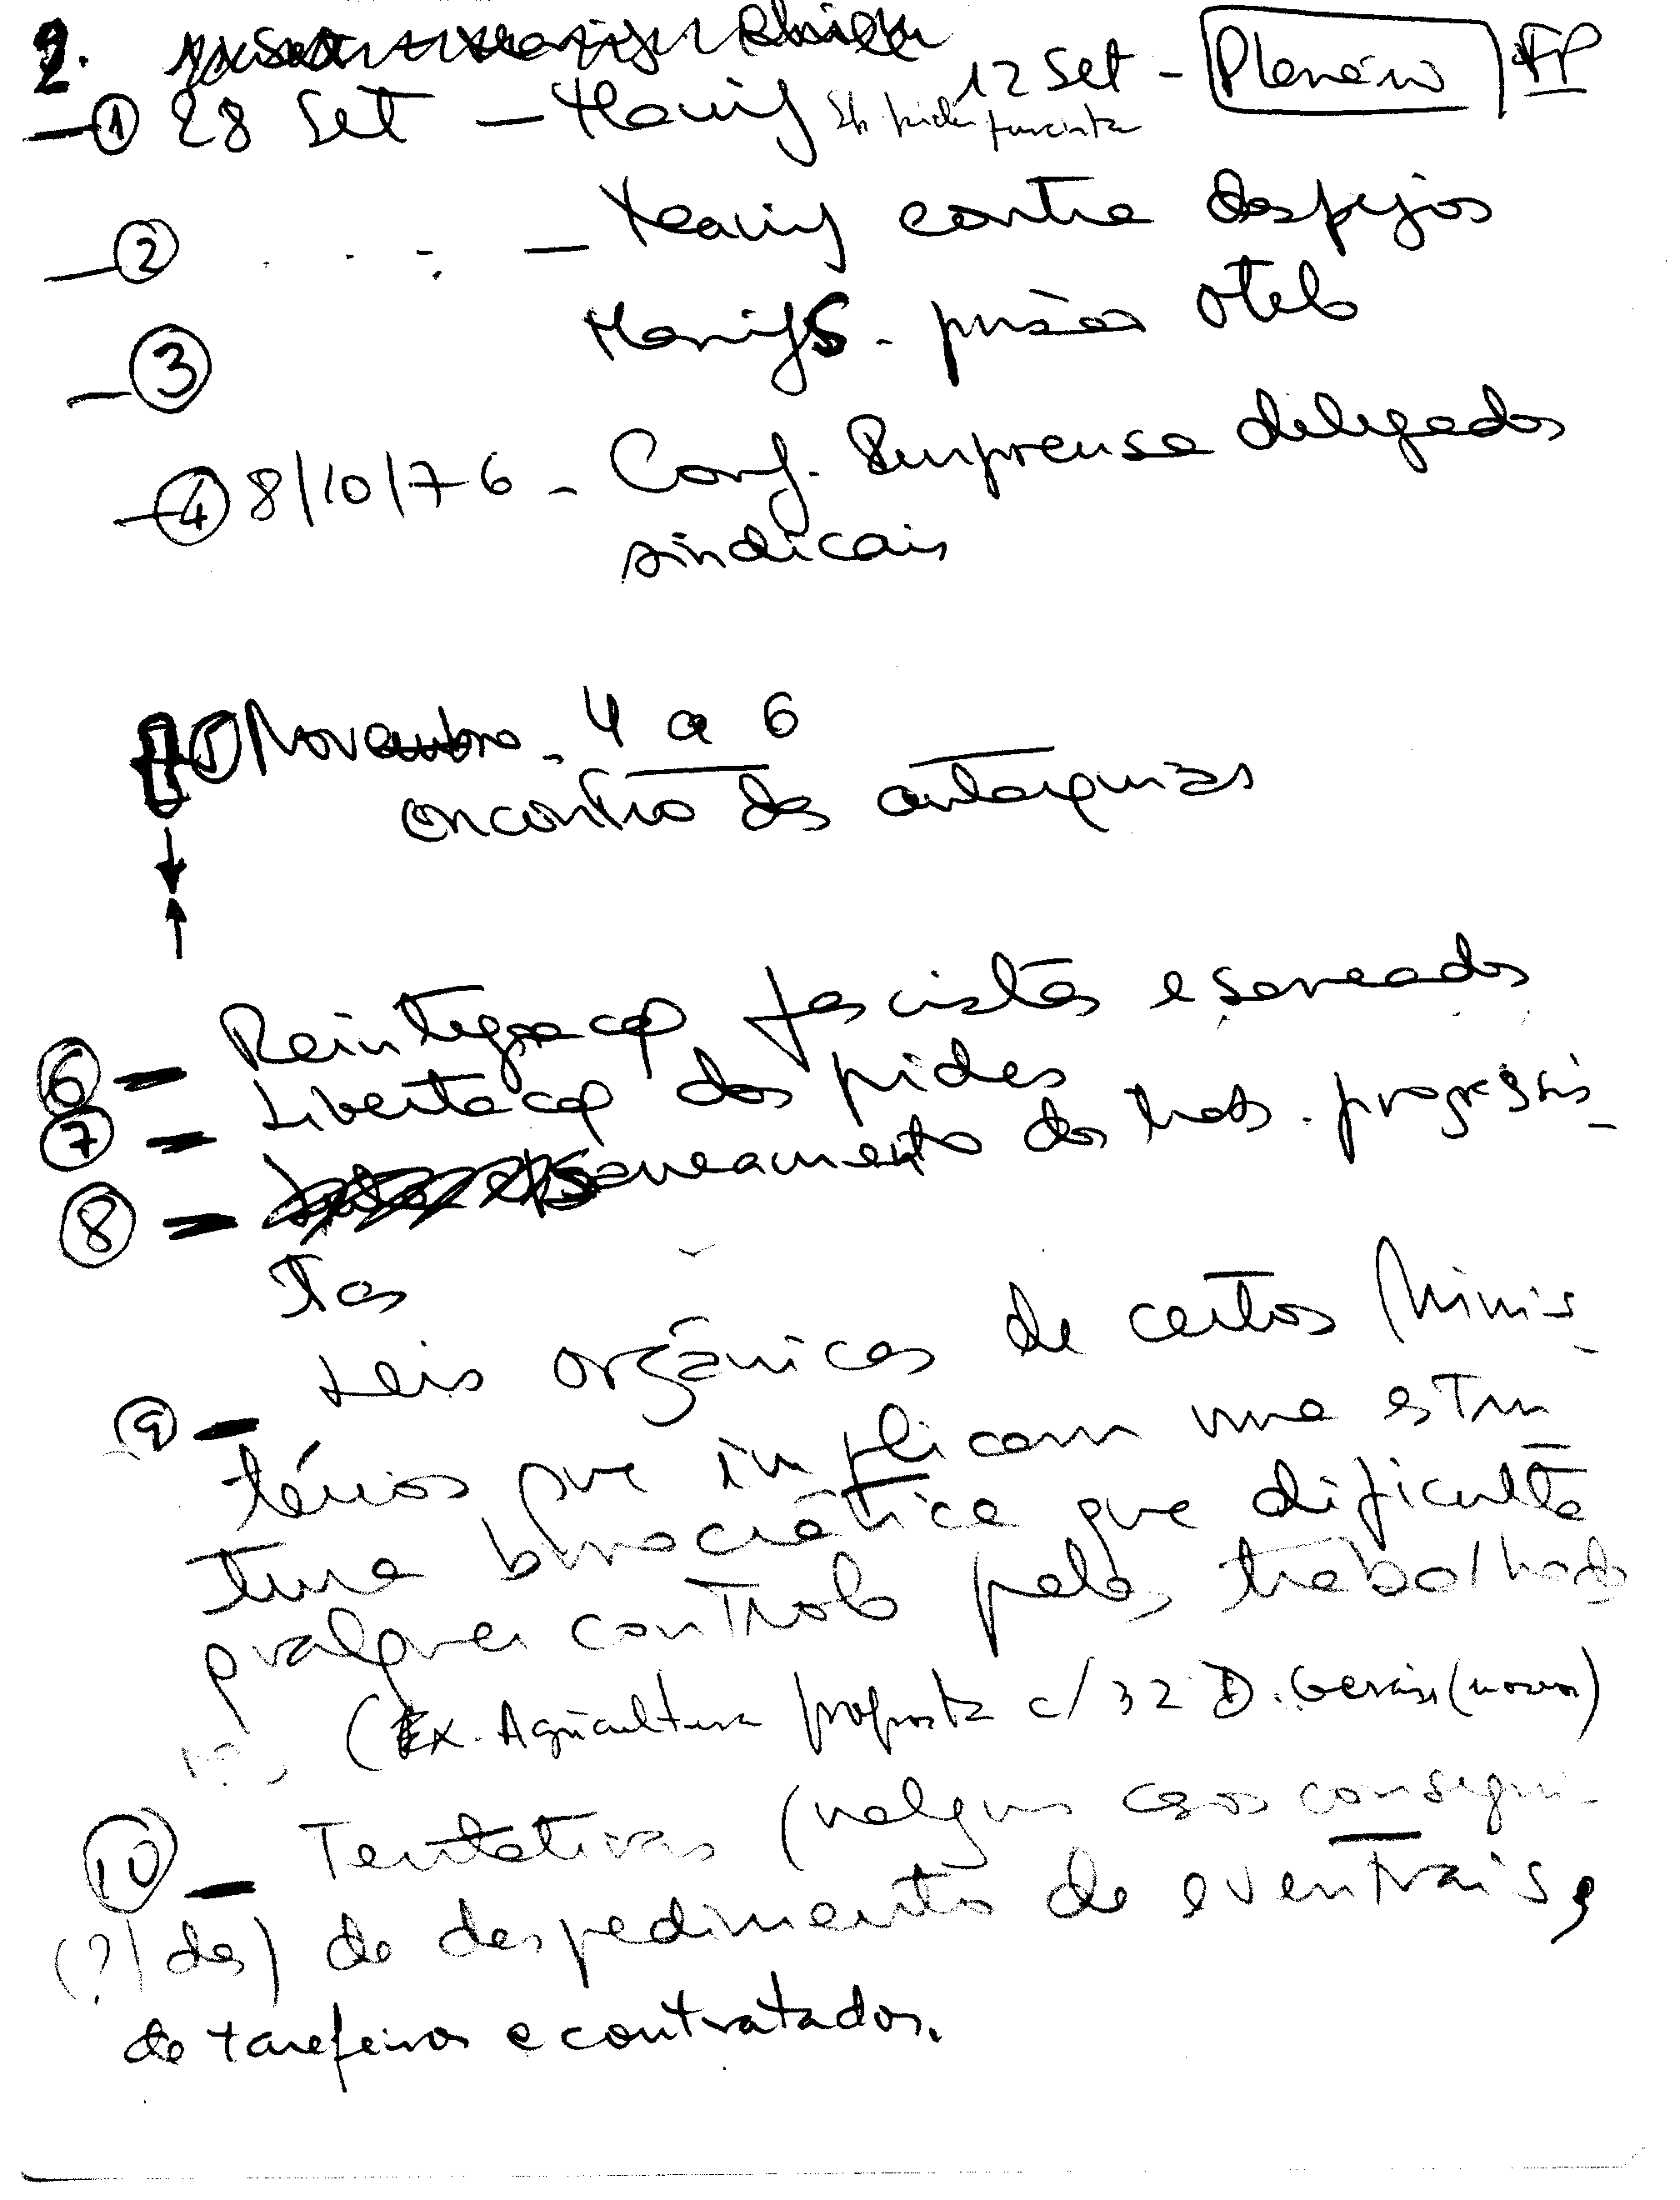 2.
12 Set - Plenário FP
① 28 Set - Manif
② - Manif contra despejos
③ Manifs. prisão Otelo
④ 8/10/76 - Conf. Imprensa delegados
sindicais
⑤ Novembro - 4 a 6
encontro das autarquias
⑥ - Reintegração fascistas e saneados
⑦ - Libertação dos pides
⑧ - Saneamento dos trabs. progressis-
tas
⑨ - Leis orgânicas de certos Minis-
térios que implicam uma estru
tura burocrática que dificulta
qualquer controlo pelos trabalhado
(Ex. Agricultura proposta c/ 32 D. Gerais (novos)
⑩ - Tentativas (nalguns casos consegui-
(?) das) de despedimento de eventuais,
de tarefeiros e contratados.